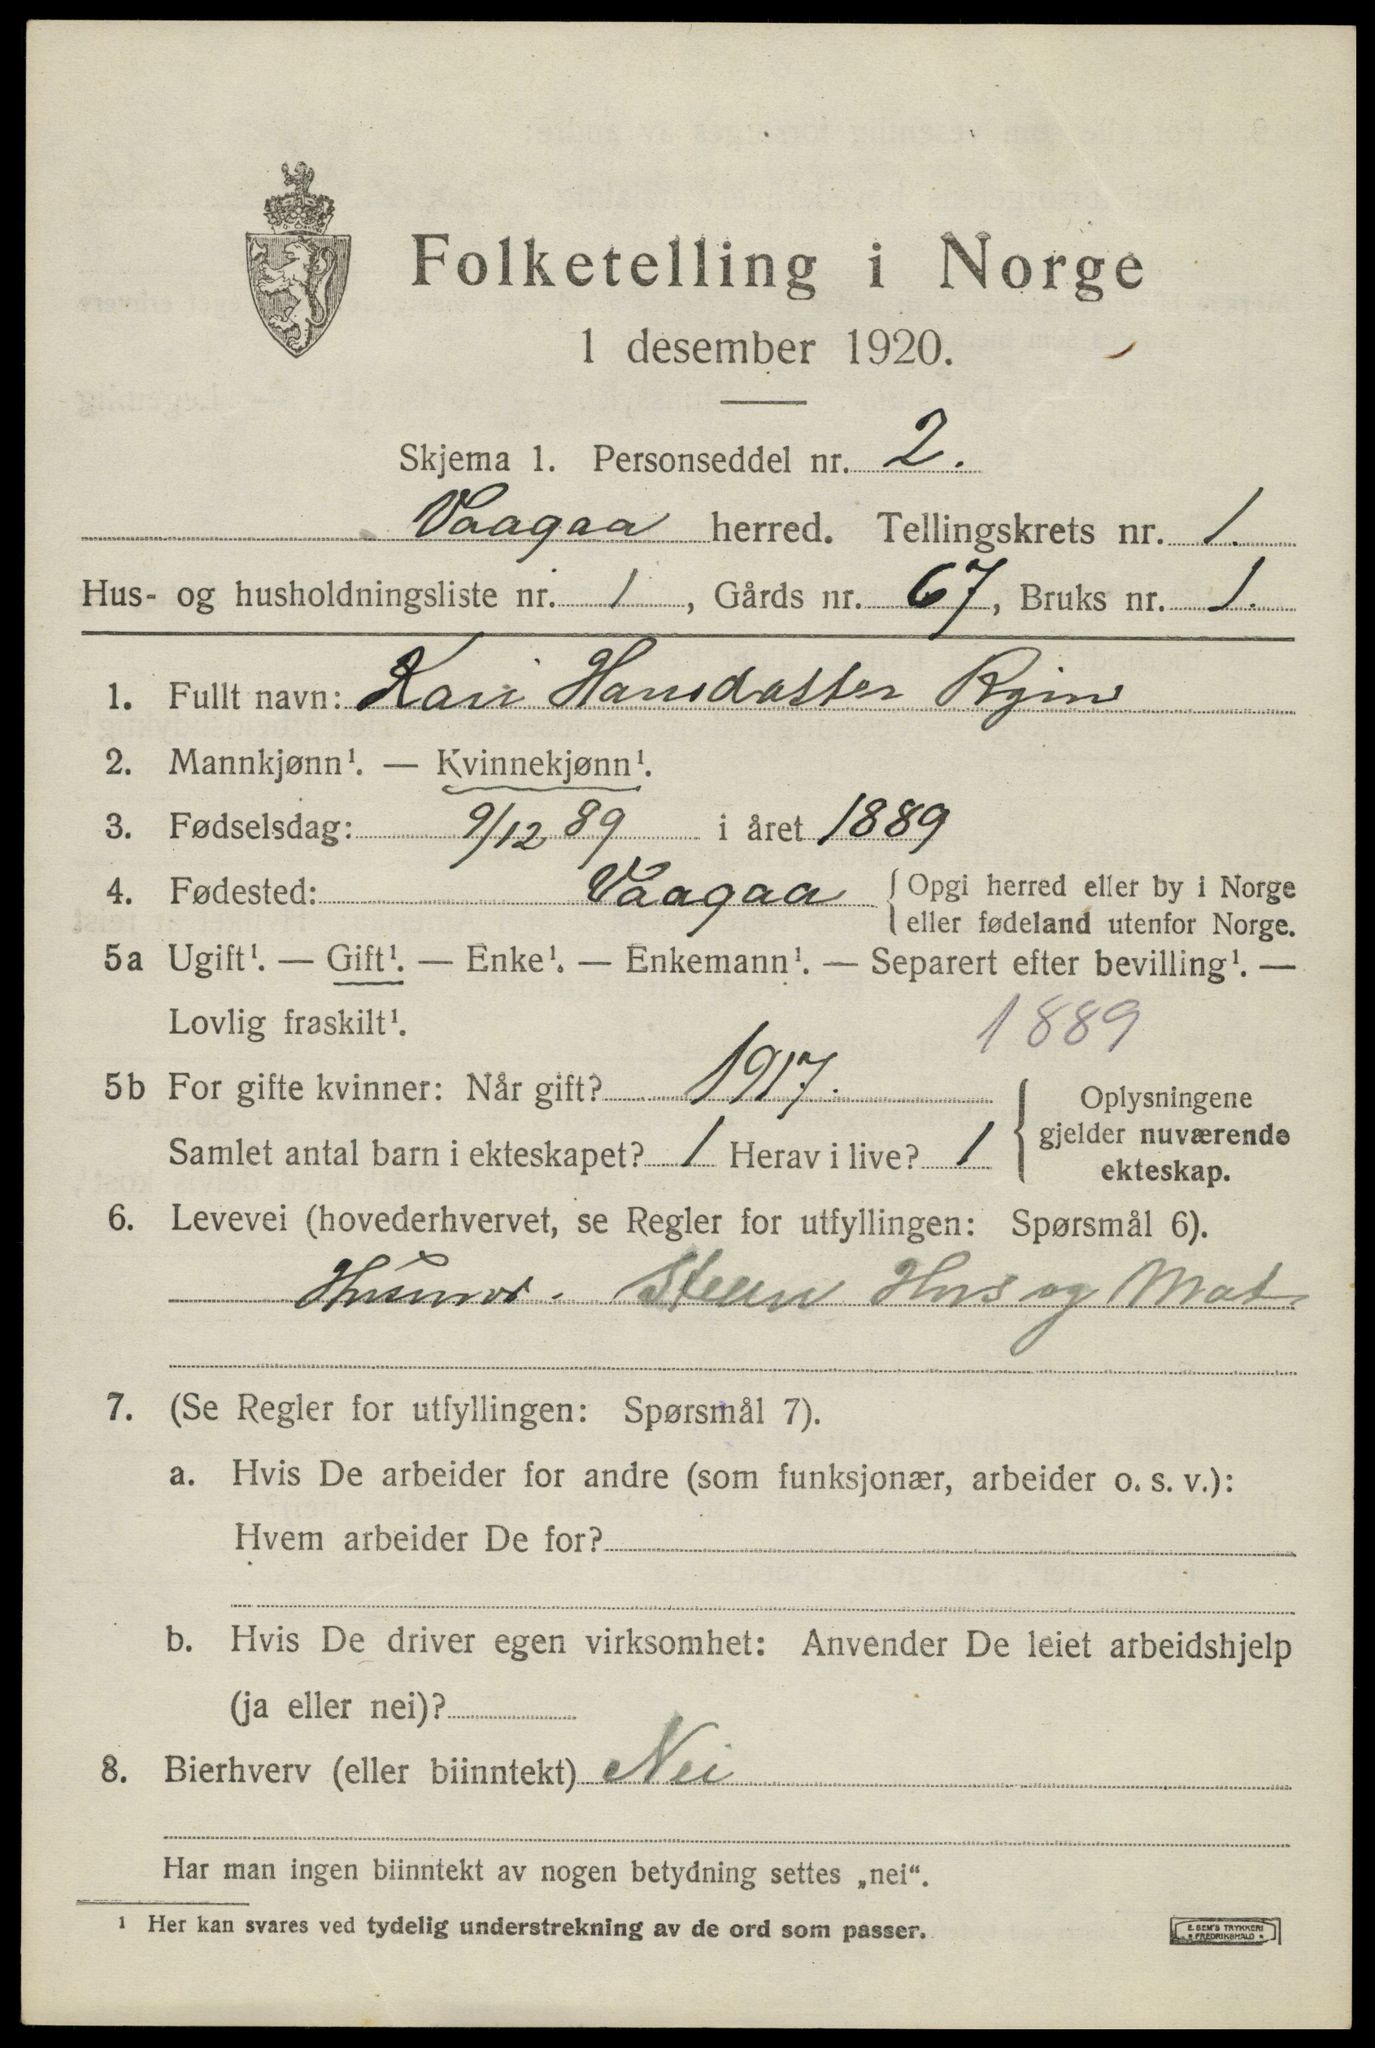 Folketelling i Norge
1 desember 1920.
Skjema 1. Personseddel nr. 2.
Vaagaa herred. Tellingskrets nr. 1.
Hus- og husholdningsliste nr. 1, Gårds nr. 67, Bruks nr. 1.
1. Fullt navn: Kari Hansdatter
2. Mannkjønn¹. — Kvinnekjønn¹.
3. Fødselsdag: 9/12 89 i året 1889
4. Fødested: Vaagaa { Opgi herred eller by i Norge
eller fødeland utenfor Norge.
5a Ugift¹. — Gift¹. — Enke¹. — Enkemann¹. — Separert efter bevilling¹. —
Lovlig fraskilt¹. 1889
5b For gifte kvinner: Når gift? 1917. { Oplysningene
gjelder nuværende
Samlet antal barn i ekteskapet? 1 Herav i live? 1 ekteskap.
6. Levevei (hovederhvervet, se Regler for utfyllingen: Spørsmål 6).
Husmor. Steller Hus og Mat
7. (Se Regler for utfyllingen: Spørsmål 7).
a. Hvis De arbeider for andre (som funksjonær, arbeider o. s. v.):
Hvem arbeider De for?
b. Hvis De driver egen virksomhet: Anvender De leiet arbeidshjelp
(ja eller nei)?
8. Bierhverv (eller biinntekt) Nei
Har man ingen biinntekt av nogen betydning settes „nei“.
¹ Her kan svares ved tydelig understrekning av de ord som passer.
E. SEM'S TRYKKERI
FREDRIKSHALD